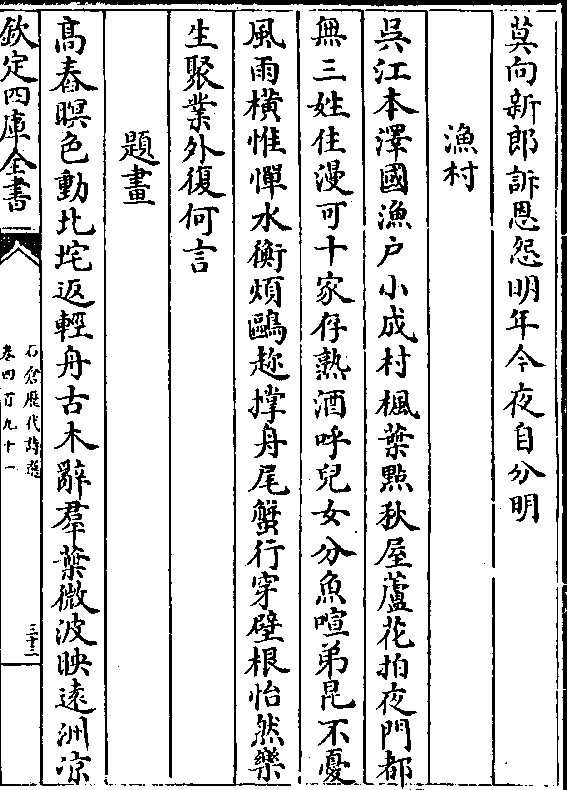 莫向新郎訴恩怨明年今夜自分明
漁村
吳江本澤國漁户小成村楓葉㸃秋屋蘆花拍夜門都
無三姓住漫可十家存熟酒呼兒女分魚喧弟昆不憂
風雨橫惟憚水衡煩鷗趂撑舟尾蟹行穿壁根怡然樂
生聚業外復何言
題畫
髙舂暝色動北垞返輕舟古木辭羣葉微波映遠洲凉
欽定四庫全書
石倉歴代詩選
卷四百九十一
三十二